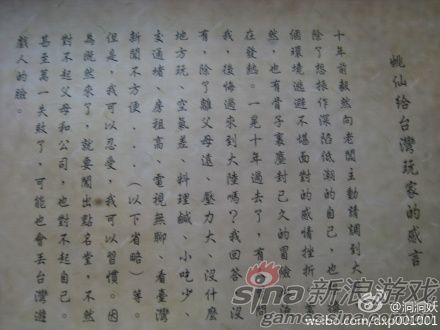 姚仙給台灣玩家的感言
十年前毅然向老闆主動請調到大
除了想振作深陷低潮的自己,也
個環境逃避不堪面對的感情挫折
然,也有骨子裏塵封已久的冒險
在發熱。一晃十年過去了,有 問
我,後悔過來到大陸嗎?我回答沒
有,除了離父母遠、壓力大、沒什麼
地方玩、空氣差、料理鹹、小吃少、
交通堵、房租高、電視無聊、看臺灣
新聞不方便....(以下省略)等。
但是,我可以忍受,我可以習慣。因
為既然來了,就要闖出點名堂,不然
對不起父母和公司,也對不起自己。
甚至萬一失敗了,可能也會丟台灣遊
戲人的臉。
sina 新浪游戏
games.sina
@洞洞妖
weibo.com/dxp001001